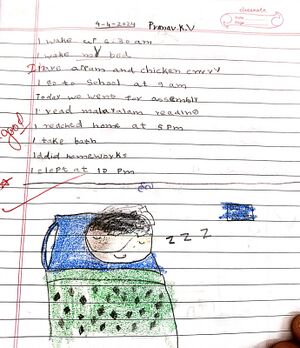 classmate
Date
Page
4-4-2024 Pranav K.V
I wake up 6:30 am
I wake my bed
I have appam and chicken curry
I go to School at 9 am
Today we went for assembly
I read malayalam reading
I reached home at 5 pm
I take bath
I did homeworks
I slept at 10 pm
good
z z z